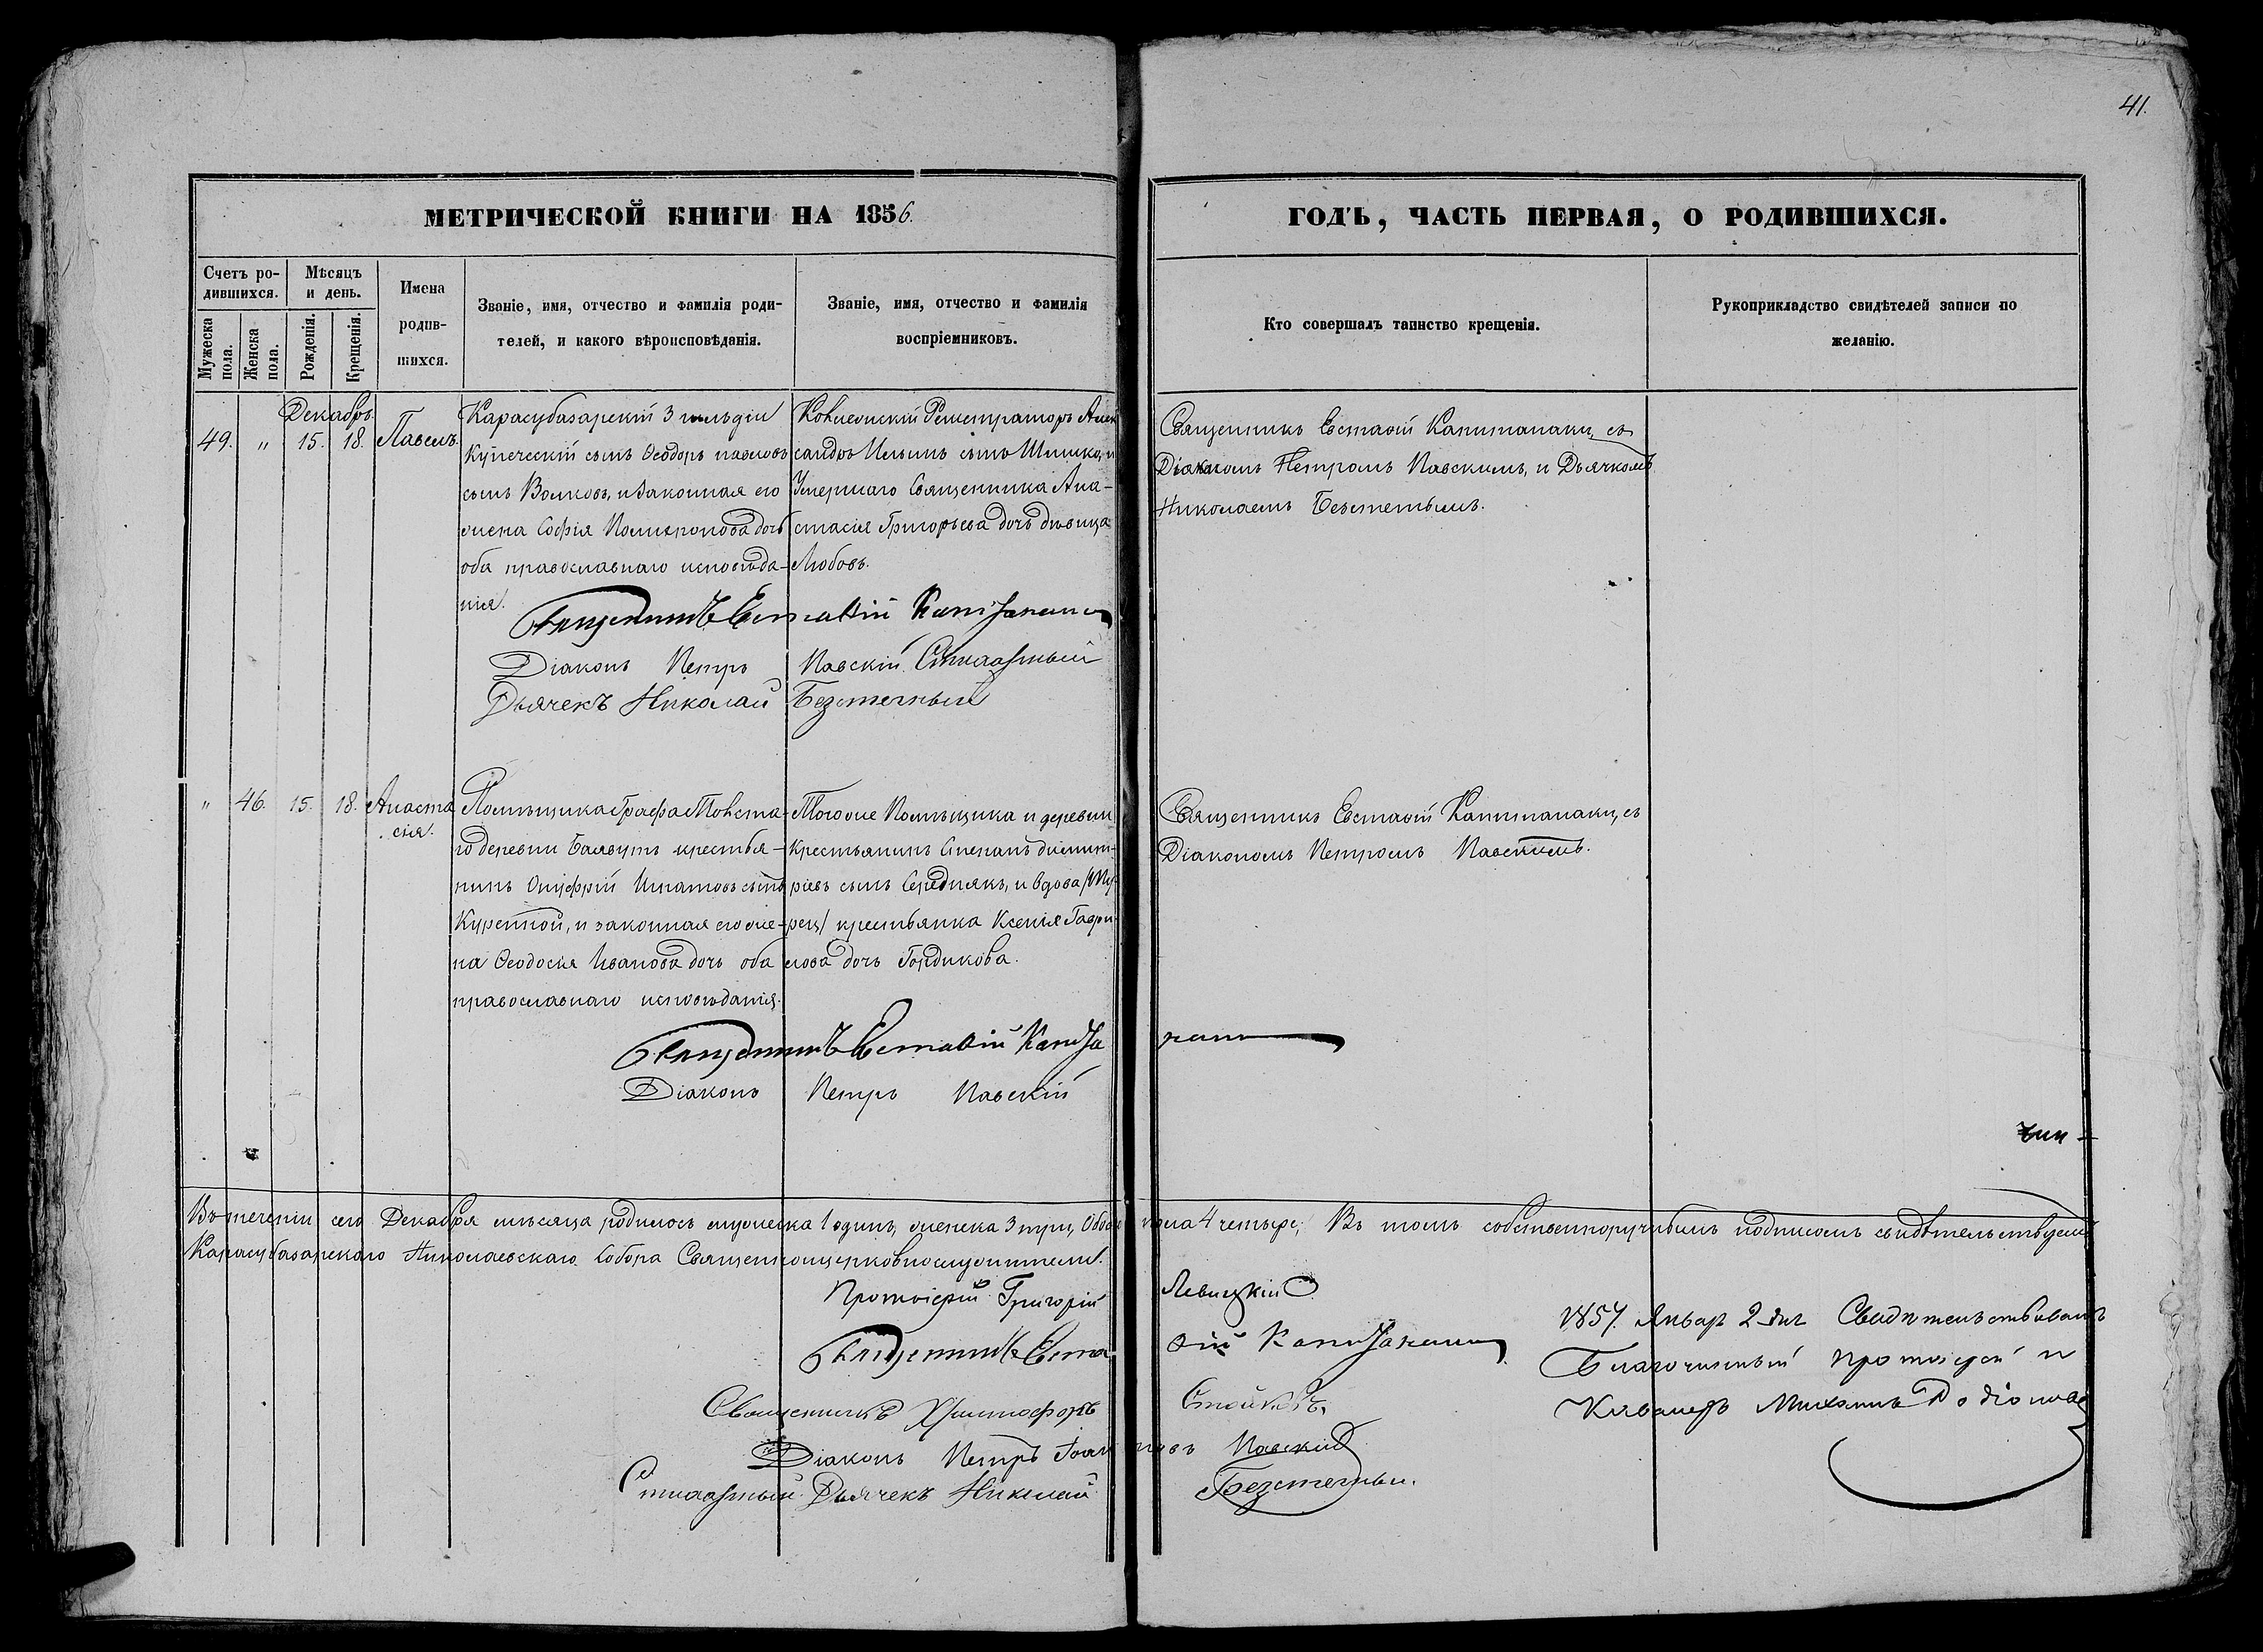 41.
МЕТРИЧЕСКОЙ КНИГИ НА 1856.
ГОДЪ, ЧАСТЬ ПЕРВАЯ, О РОДИВШИХСЯ.
Счетъ ро-
дившихся.
Мужеска
пола.
Женска
пола.
Мѣсяцъ
и день.
Рожденія.
Крещенія.
Имена
родив-
шихся.
Званіе, имя, отчество и фамилія роди-
телей, и какого вѣроисповѣданія.
Званіе, имя, отчество и фамилія
воспріемниковъ.
Кто совершалъ таинство крещенія.
Рукоприкладство свидѣтелей записи по
желанію.
Декабрь
49. „ 15. 18. Павелъ
Карасубазарскій 3 гильдіи
купеческій сынъ Ѳеодоръ павловъ
сынъ Волковъ, и законная его
жена Софія Полихронова дочь
оба православнаго исповѣда-
нія.
Алек
сандръ Ильинъ сынъ Шишко, и
Умершаго Священника Ана-
стасія Григорьева дочь дѣвица
Любовь.
Священникъ Евстаѳій Капитанаки, съ
Діакономъ Петромъ Павскимъ, и Дьячкомъ
Николаемъ
Священникъ Евстаѳій Капитанаки
Діаконъ Петръ Павскій
Дьячекъ Николай
„ 46. 15. 18. Анаста
сія.
Помѣщика Графа
го деревни крестья-
нинъ Онуфрій Игнатовъ сынъ
и законная его же-
на Ѳеодосія Иванова дочь оба
православнаго исповѣданія.
Тогоже Помѣщика и деревни
Крестьянинъ Степанъ димит-
ріевъ сынъ Середнякъ, и вдова
крестьянка Ксенія Гаври-
лова дочь Гордикова.
Священникъ Евстаѳій Капитанаки, съ
Діакономъ Петромъ Павскимъ.
Священникъ Евстаѳій Капитанаки
Діаконъ Петръ Павскій
Въ теченіи сего Декабря мѣсяца родилось мужеска 1 одинъ, женска 3 три, Обоего пола 4 четыре; Въ томъ собственноручнымъ подписомъ свидѣтельствуемъ
Карасубазарскаго Николаевскаго Собора Священноцерковнослужители.
Протоіерей Григорій Левицкій
Священникъ Евстаѳій Капитанаки
Священникъ Христофоръ Стойковъ.
Діаконъ Петръ Іоанновъ Павскій
Дьячекъ Николай
1857. Январ 2 дня Свидѣтельствовалъ
Благочинный протоіерей и
Кавалеръ Михаилъ Родіоновъ